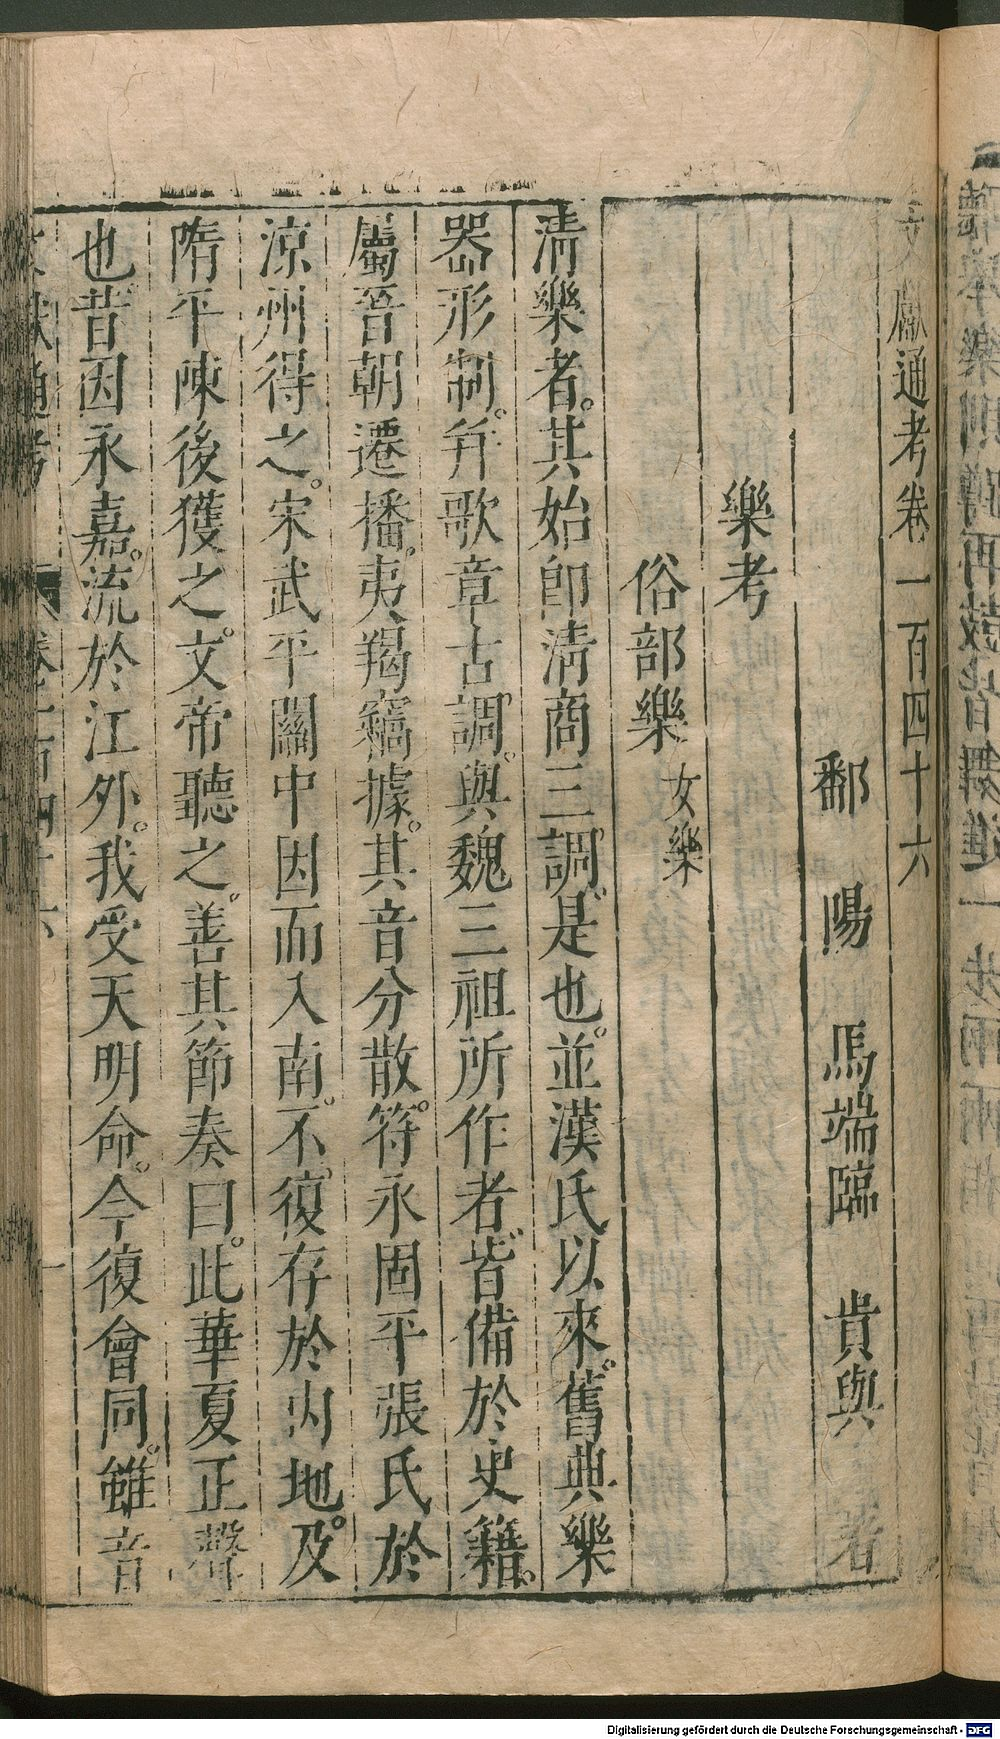 文獻通考卷一百四十六
鄱陽馬端臨貴與著
樂考
俗部樂女樂
清樂者。其始卽清商三調是也。並漢氏以來舊典樂
器形制。并歌章古調。與魏三祖所作者。皆備於史籍。
屬晉朝遷播。夷羯竊據。其音分散。符永固平張氏於
涼州得之。宋武平關中因而入南。不復存於內地。及
隋平陳後獲之。文帝聽之。善其節奏曰。此華夏正聲
也。昔因永嘉。流於江外。我受天明命。今復會同。雖音
文獻通考 卷一百四十六 一
Digitalisierung gefördert durch die Deutsche Forschungsgemeinschaft - DFG